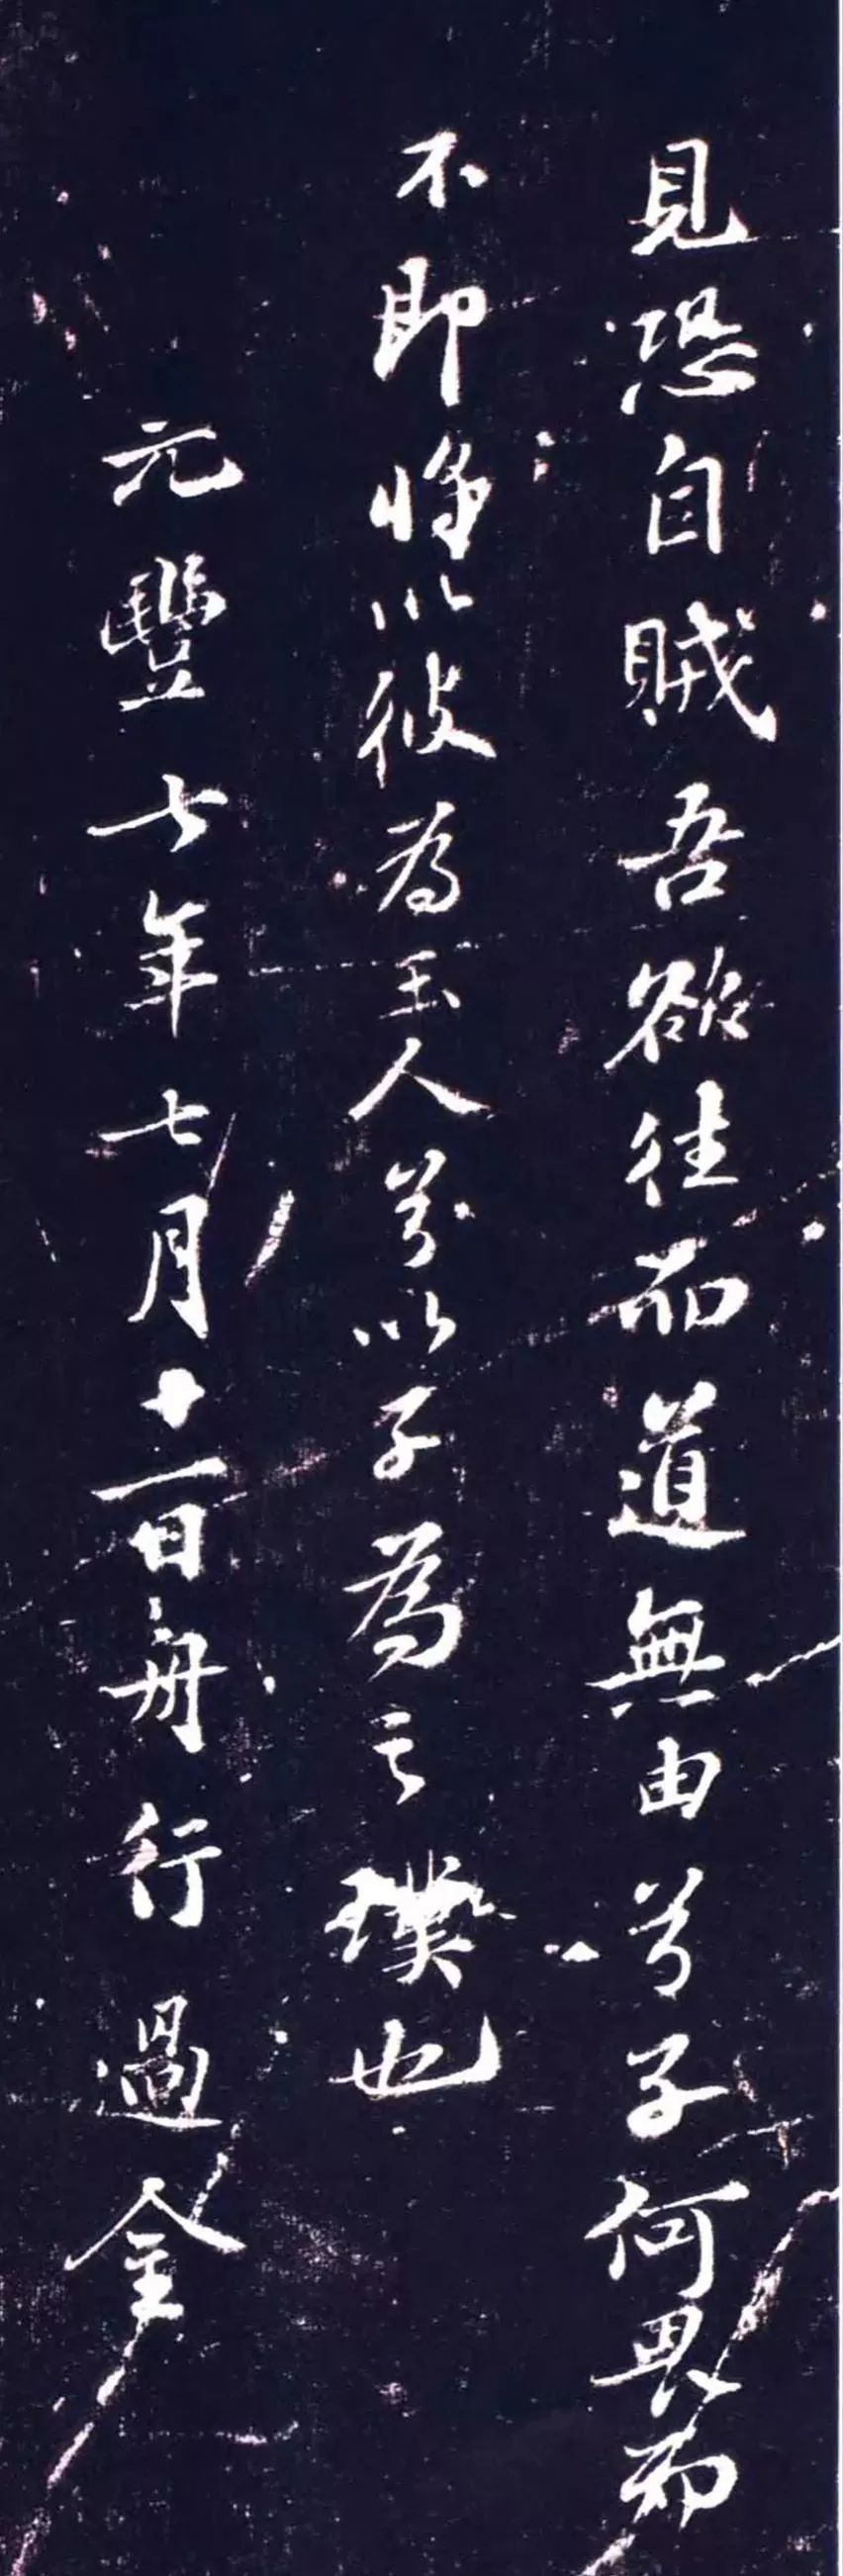 見恐自賊吾欲往而道無由兮子何畏而
不即將以彼為玉人兮以子為之璞也
元豐七年七月十一日舟行過金